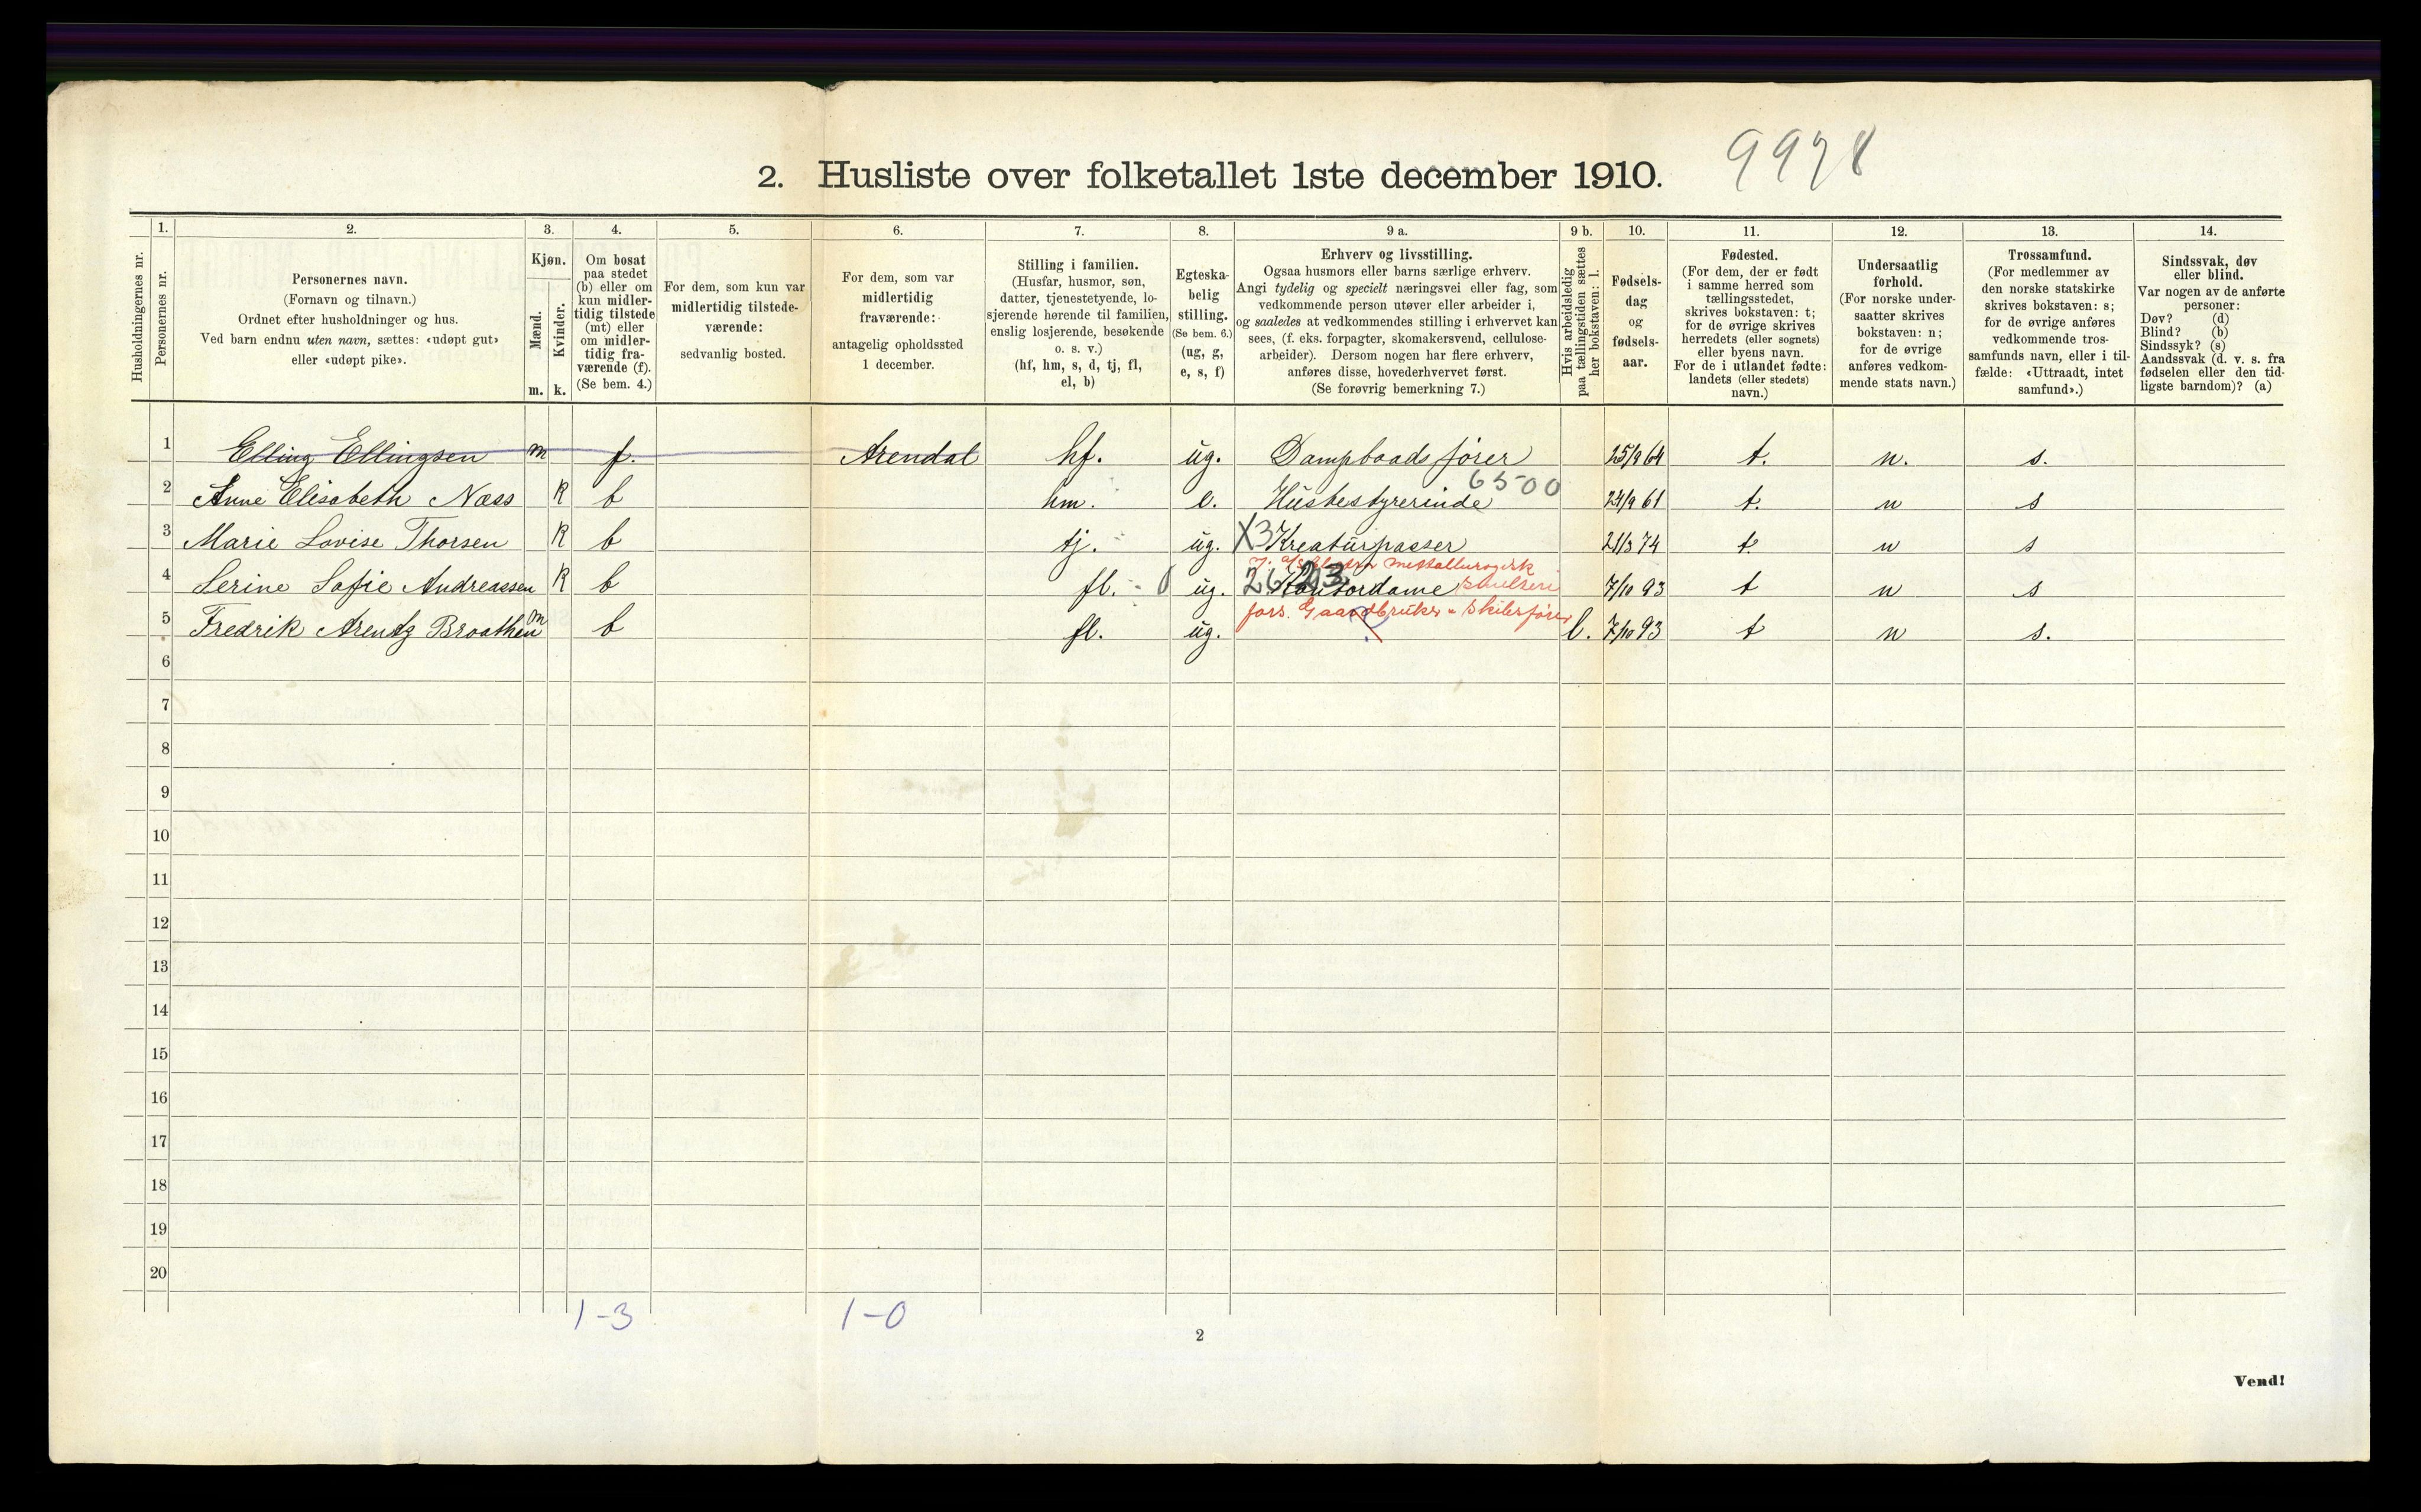 9978
2. Husliste over folketallet 1ste december 1910.
Husholdningernes nr.
1.
Personernes nr.
2.
Personernes navn.
(Fornavn og tilnavn.)
Ordnet efter husholdninger og hus.
Ved barn endnu uten navn, sættes: «udøpt gut»
eller «udøpt pike».
3.
Kjøn.
Mænd.
Kvinder.
m. k.
4.
Om bosat
paa stedet
(b) eller om
kun midler-
tidig tilstede
(mt) eller
om midler-
tidig fra-
værende (f).
(Se bem. 4.)
5.
For dem, som kun var
midlertidig tilstede-
værende:
sedvanlig bosted.
6.
For dem, som var
midlertidig
fraværende:
antagelig opholdssted
1 december.
7.
Stilling i familien.
(Husfar, husmor, søn,
datter, tjenestetyende, lo-
sjerende hørende til familien,
enslig losjerende, besøkende
o. s. v.)
(hf, hm, s, d, tj, fl,
el, b)
8.
Egteska-
belig
stilling.
(Se bem. 6.)
(ug, g,
e, s, f)
9 a.
Erhverv og livsstilling.
Ogsaa husmors eller barns særlige erhverv.
Angi tydelig og specielt næringsvei eller fag, som
vedkommende person utøver eller arbeider i,
og saaledes at vedkommendes stilling i erhvervet kan
sees, (f. eks. forpagter, skomakersvend, cellulose-
arbeider). Dersom nogen har flere erhverv,
anføres disse, hovederhvervet først.
(Se forøvrig bemerkning 7.)
9 b.
Hvis arbeidsledig
paa tællingstiden sættes
her bokstaven: l.
10.
Fødsels-
dag
og
fødsels-
aar.
11.
Fødested.
(For dem, der er født
i samme herred som
tællingsstedet,
skrives bokstaven: t;
for de øvrige skrives
herredets (eller sognets)
eller byens navn.
For de i utlandet fødte:
landets (eller stedets)
navn.)
12.
Undersaatlig
forhold.
(For norske under-
saatter skrives
bokstaven: n;
for de øvrige
anføres vedkom-
mende stats navn.)
13.
Trossamfund.
(For medlemmer av
den norske statskirke
skrives bokstaven: s;
for de øvrige anføres
vedkommende tros-
samfunds navn, eller i til-
fælde: «Uttraadt, intet
samfund».)
14.
Sindssvak, døv
eller blind.
Var nogen av de anførte
personer:
Døv? (d)
Blind? (b)
Sindssyk? (s)
Aandssvak (d. v. s. fra
fødselen eller den tid-
ligste barndom)? (a)
1 Elling Ellingsen m f. Arendal hf. ug. Dampbaadsfører 25/9 64 t. n. s.
6500
2 Anne Elisabeth Næss k b hm. e. Husbestyrerinde 24/9 61 t. n s
3 Marie Lovise Thorsen k b tj. ug. X3 Kreaturpasser 21/3 74 t n s
metallurogisk
4 Serine Sofie Andreassen k b fl. ug. Kontordame 7/10 93 t n s
fors. Gaardbruker
5 Fredrik Arentz Braathen m b fl. ug. l. 7/10 93 t n s.
6
7
8
9
10
11
12
13
14
15
16
17
18
19
20
1-3 1-0
2
Vend!